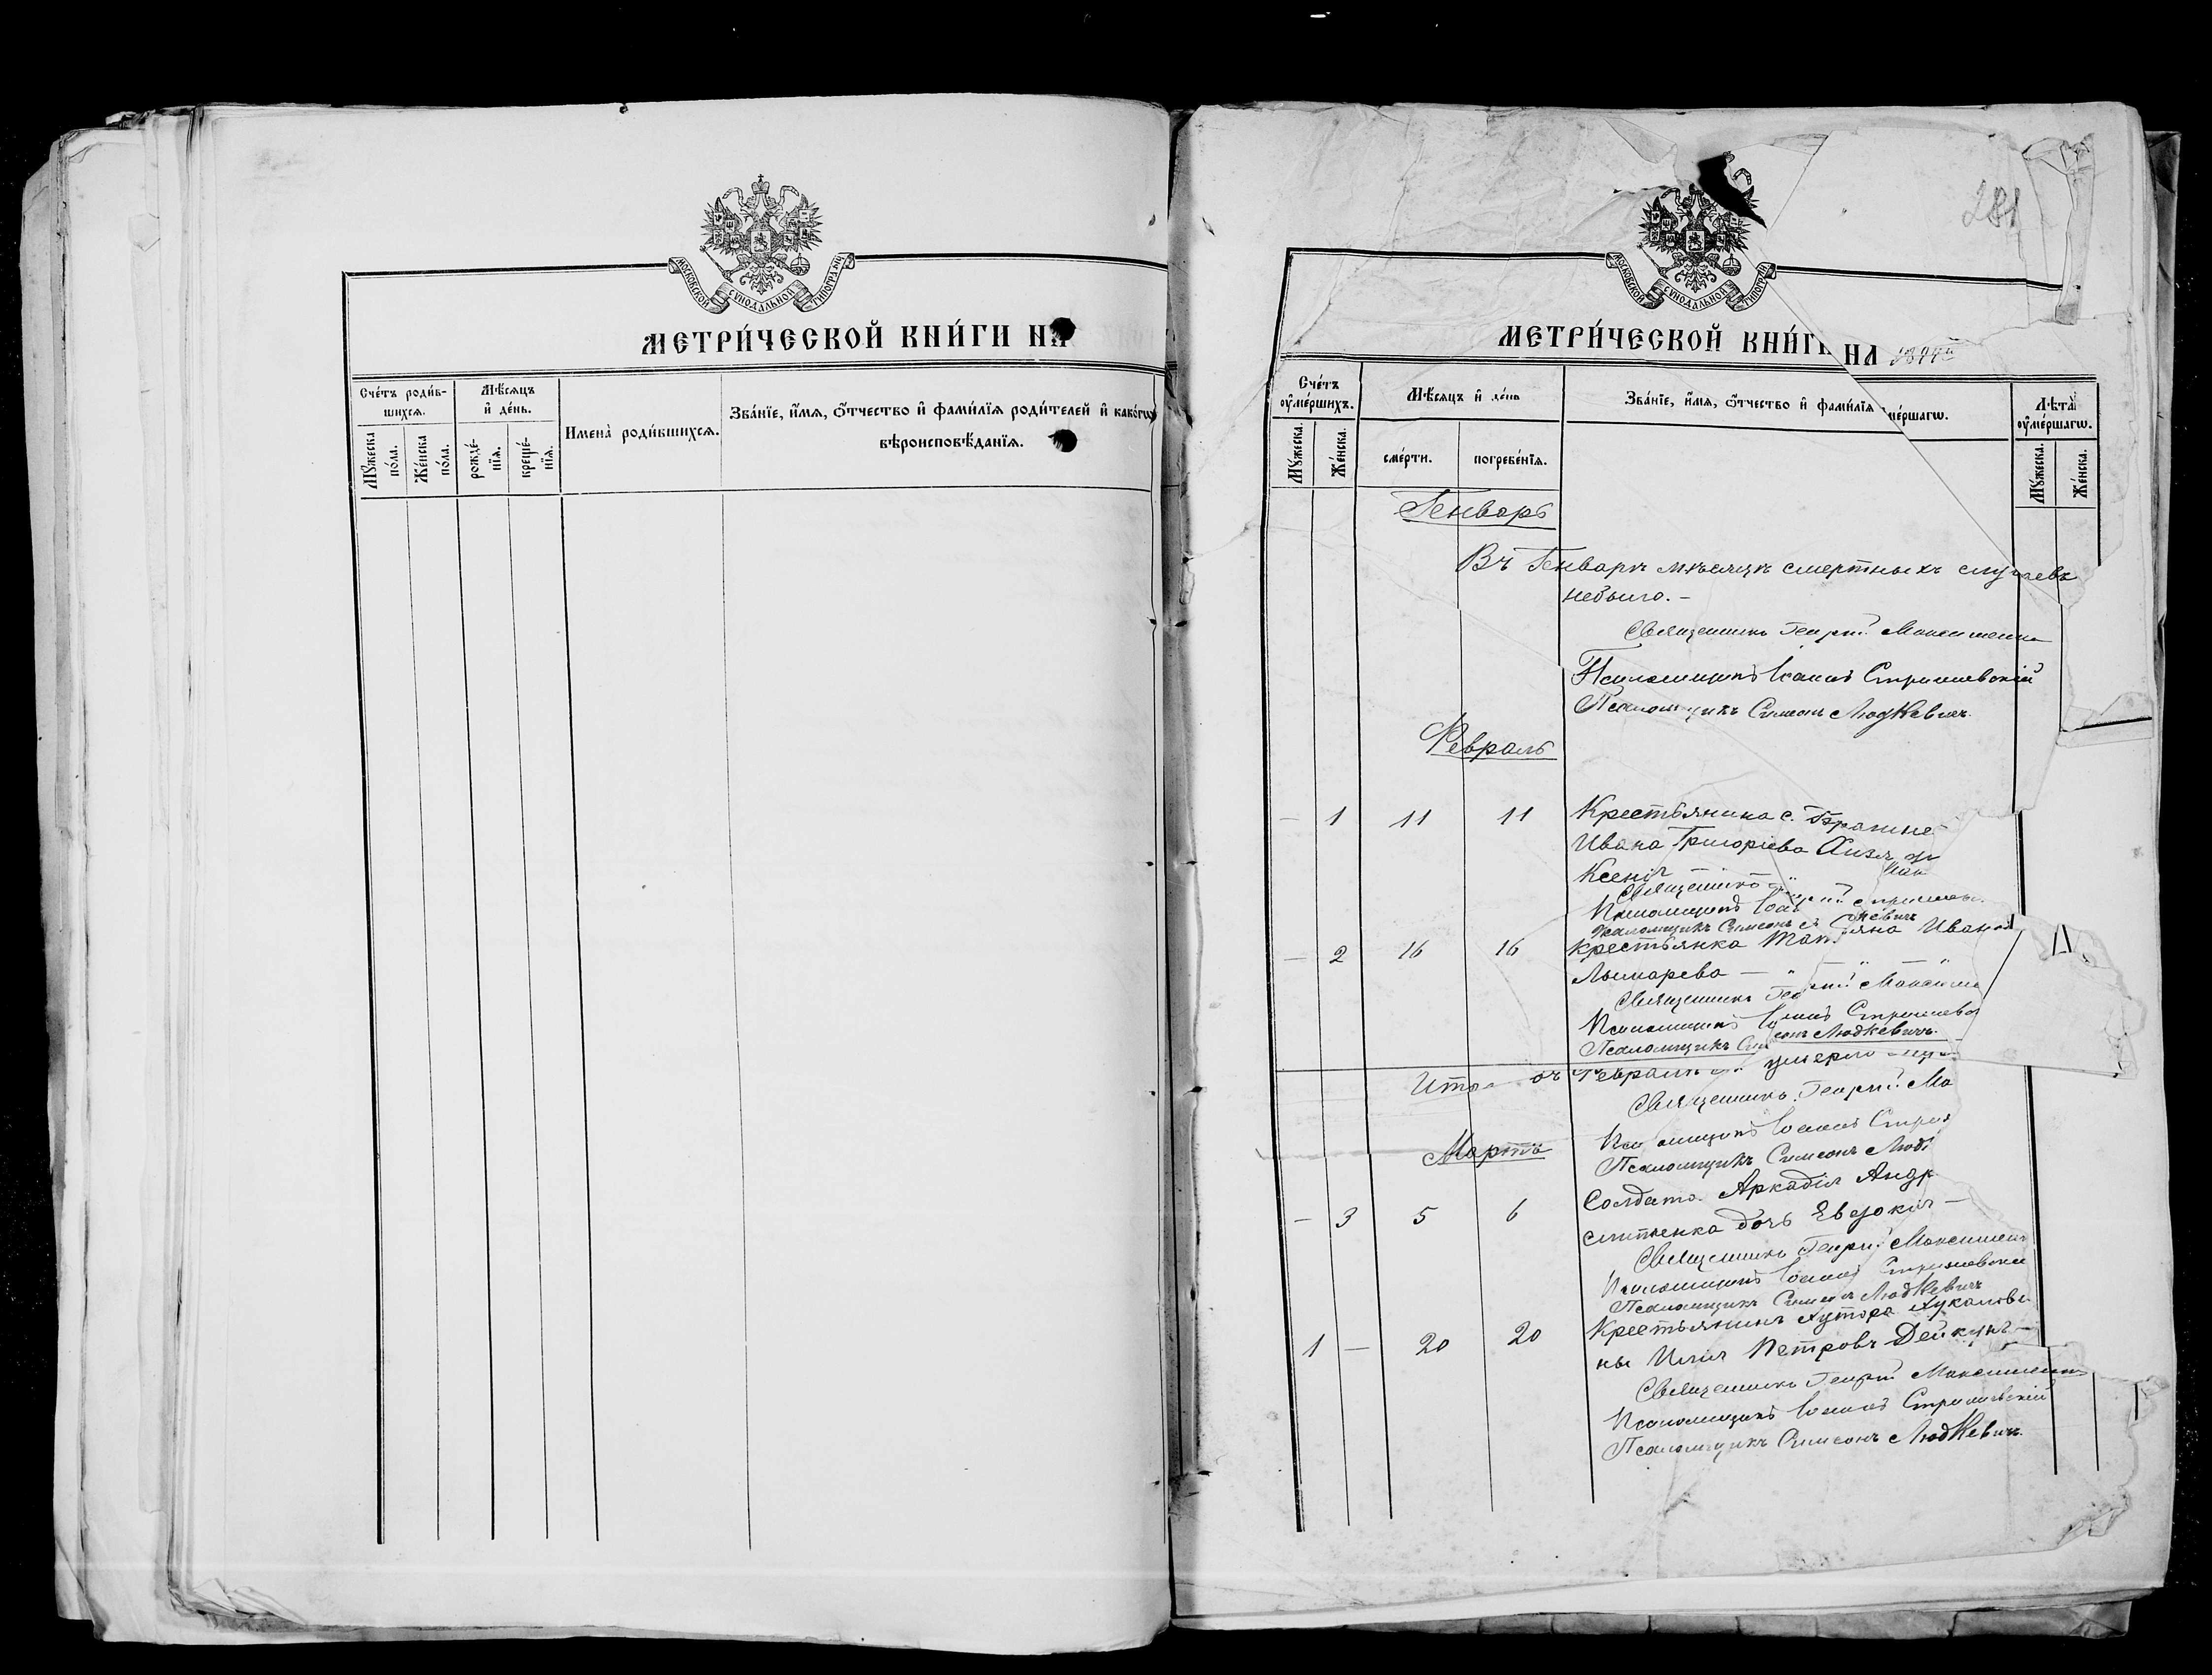 МОСКОВСКОЙ СѴНОДАЛЬНОЙ ТИПОГРАФІИ
МЕТРИ́ЧЕСКОЙ КНИ́ГИ НА
Сче́тъ роди́в-
шихсѧ.
Мѣ́сѧцъ
и҆ де́нь.
Имена̀ роди́вшихсѧ.
Зва́нїе, и҆́мѧ, ѻ҆́тчество и҆ фами́лїѧ роди́телей и҆ како́гѡ
вѣроисповѣ́данїѧ.
Мꙋ́жеска
по́ла.
Же́нска
по́ла.
рожде́-
нїѧ.
креще́-
нїѧ.
281
МОСКОВСКОЙ СѴНОДАЛЬНОЙ ТИПОГРАФІИ
МЕТРИ́ЧЕСКОЙ КНИ́ГИ НА
Сче́тъ
ᲂу҆ме́ршихъ.
Мѣ́сѧцъ и҆ де́нь
Зва́нїе, и҆́мѧ, ѻ҆́тчество и҆ фами́лїѧ ме́ршагѡ.
Лѣ́та
ᲂу҆ме́ршагѡ.
Мꙋ́жеска.
Же́нска.
сме́рти.
погребе́нїѧ.
Мꙋ́жеска.
Же́нска.
Генварь
Въ Генварѣ мѣсяцѣ смертныхъ случаевъ
небыло.—
Священникъ Георгій
Псаломщикъ Іоаннъ
Псаломщикъ Симеонъ Людкевичъ.
Февраль
— 1 11 11 Крестьянина с.
Ивана Григоріева
Ксенія
Священникъ
Псаломщикъ
Псаломщикъ Симеонъ
— 2 16 16 Крестьянка Татьяна Иванова
Лымарева —
Священникъ Георгій
Псаломщикъ Іоаннъ
Псаломщикъ Симеонъ Людкевичъ.
Февралѣ умерло
Священникъ Георгій
Мартъ
Псаломщикъ Іоаннъ
Псаломщикъ Симеонъ
— 3 5 6 Солдата Аркадія Андр
дочь Евдокія —
Священникъ Георгій
Псаломщикъ Іоаннъ
Псаломщикъ Симеонъ Людкевичъ
1 — 20 20 Крестьянинъ хутора
ны Илія Петровъ Дейкунъ —
Священникъ Георгій
Псаломщикъ Іоаннъ
Псаломщикъ Симеонъ Людкевичъ.